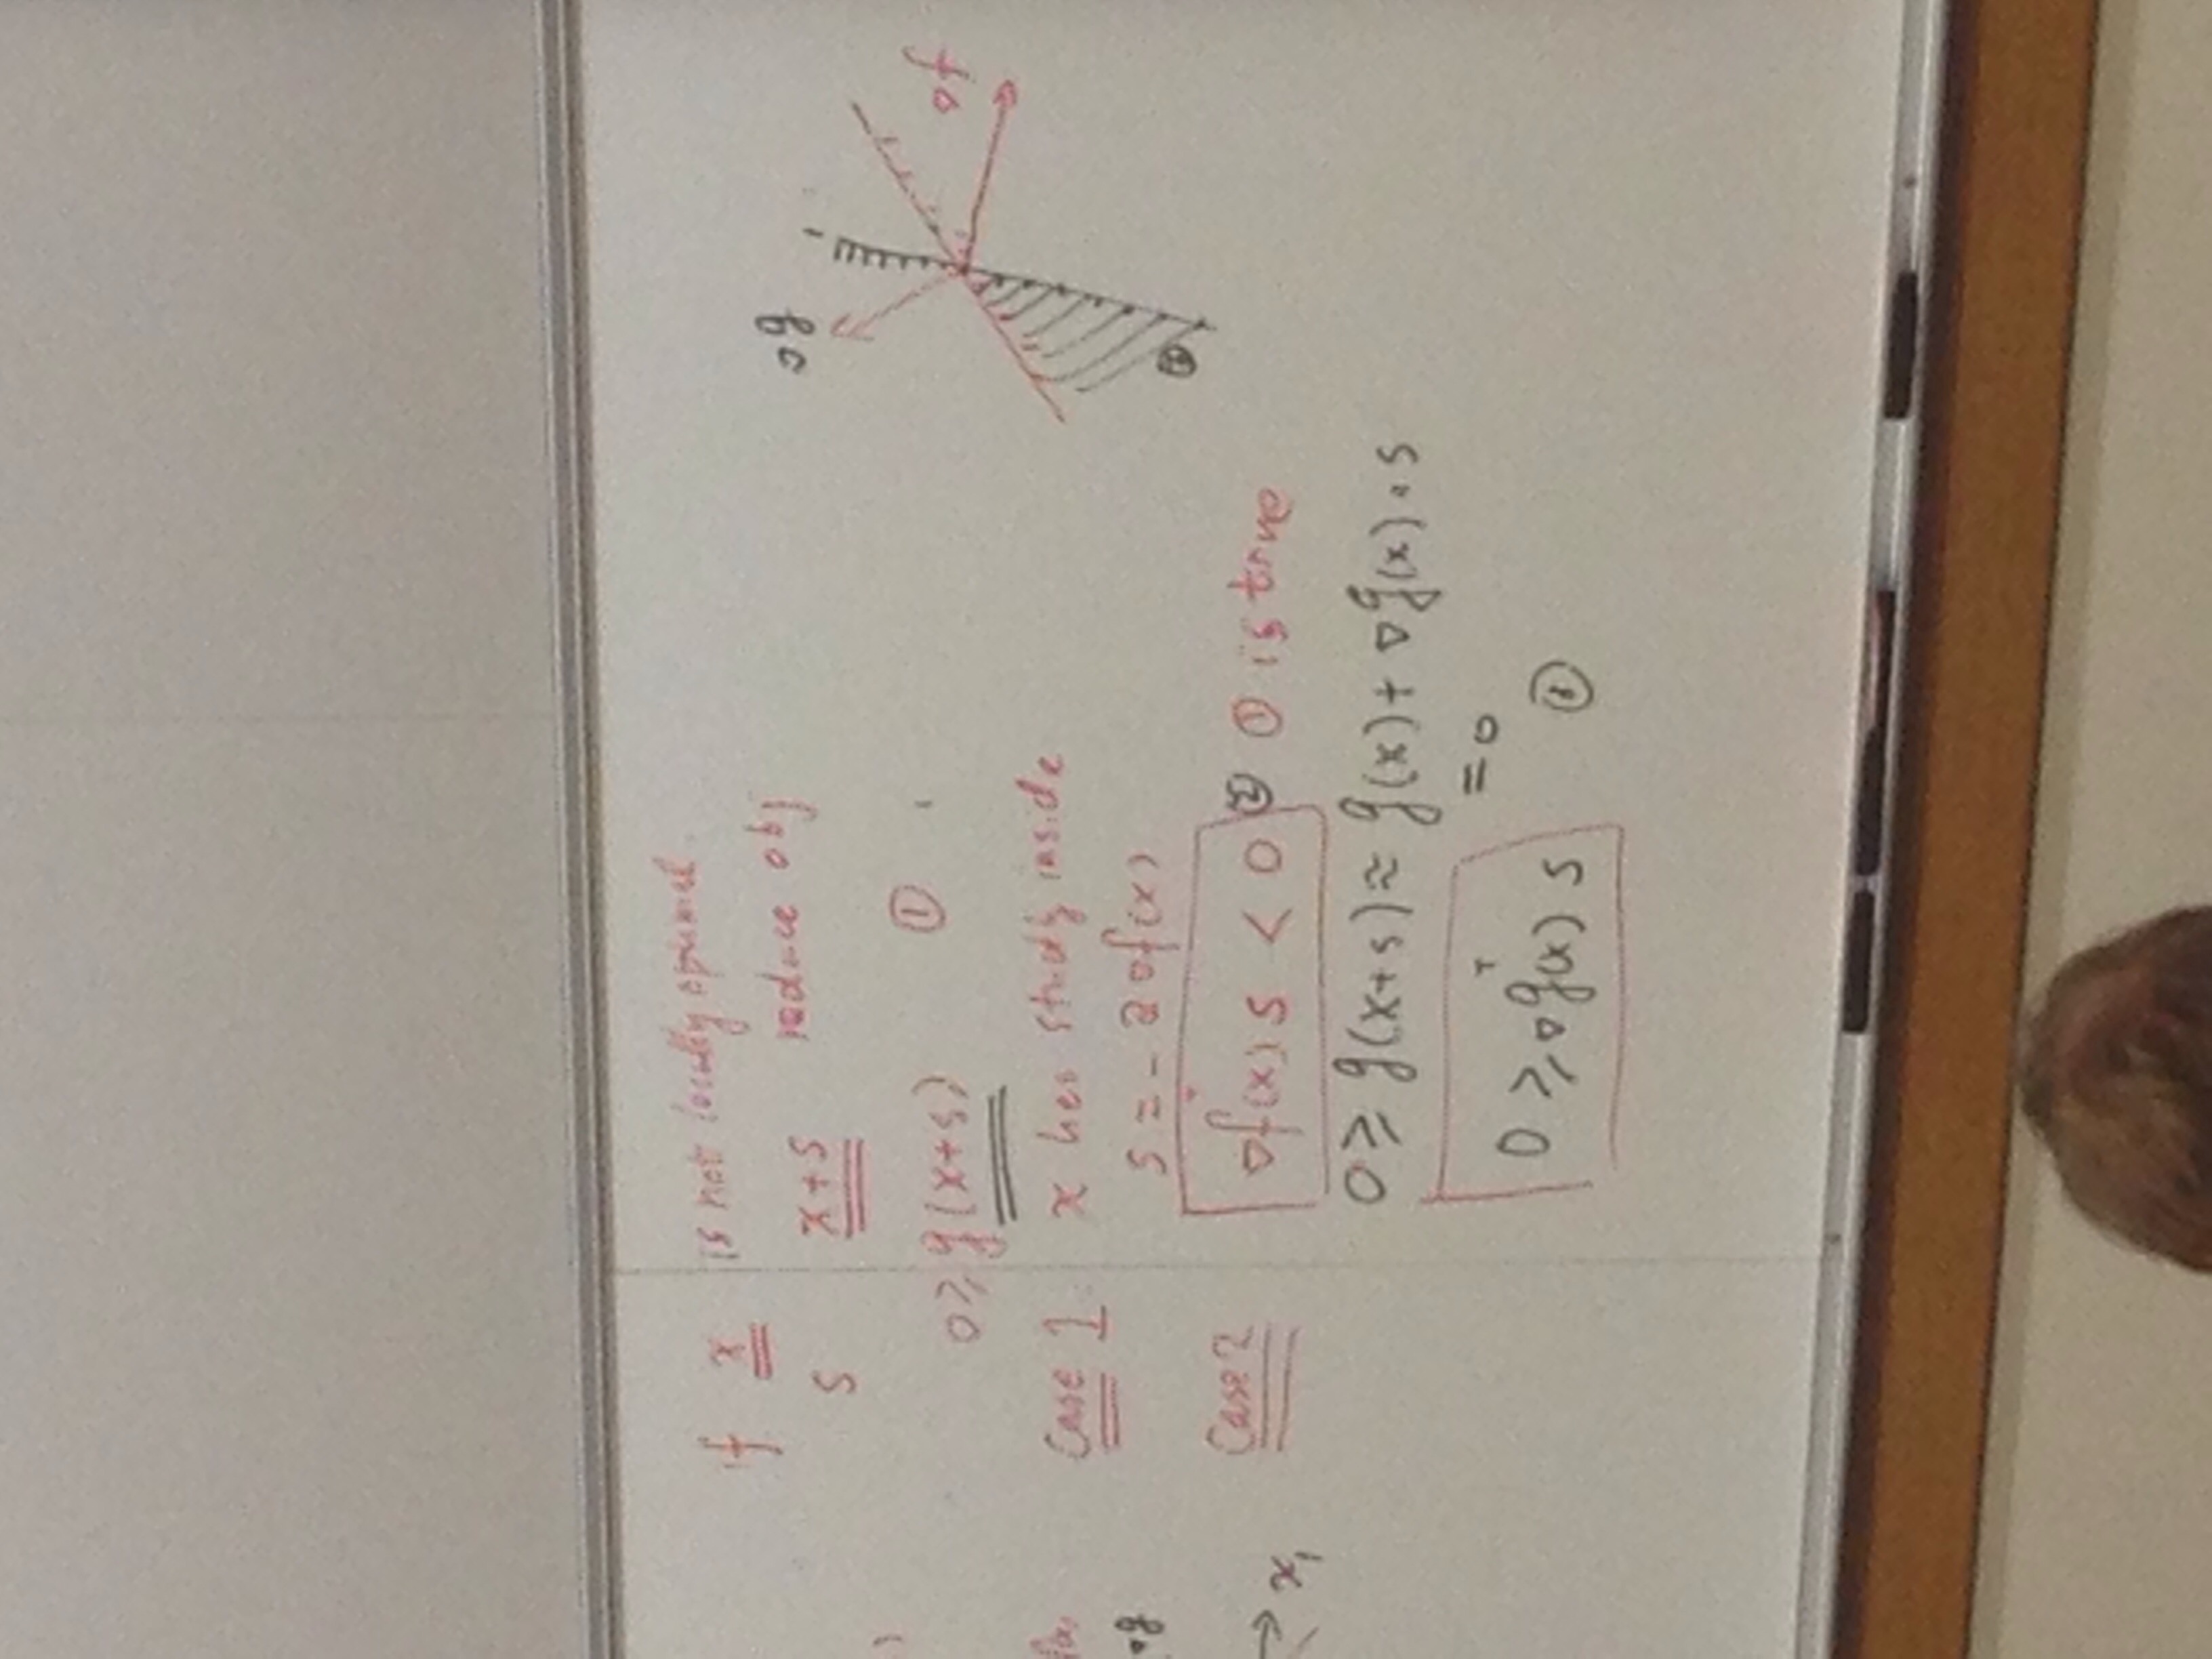 if x is not locally optimal
s x+s reduce obj
0 ≥ g(x+s) ①
Case 1 x lies strictly inside
s = - a ∇f(x)
Case 2 ∇f(x)ᵀ s < 0 ② ① is true
0 ≥ g(x+s) ≈ g(x) + ∇g(x) · s
= 0
0 ≥ ∇g(x)ᵀ s
∇g
∇f
∇g
→ x₁